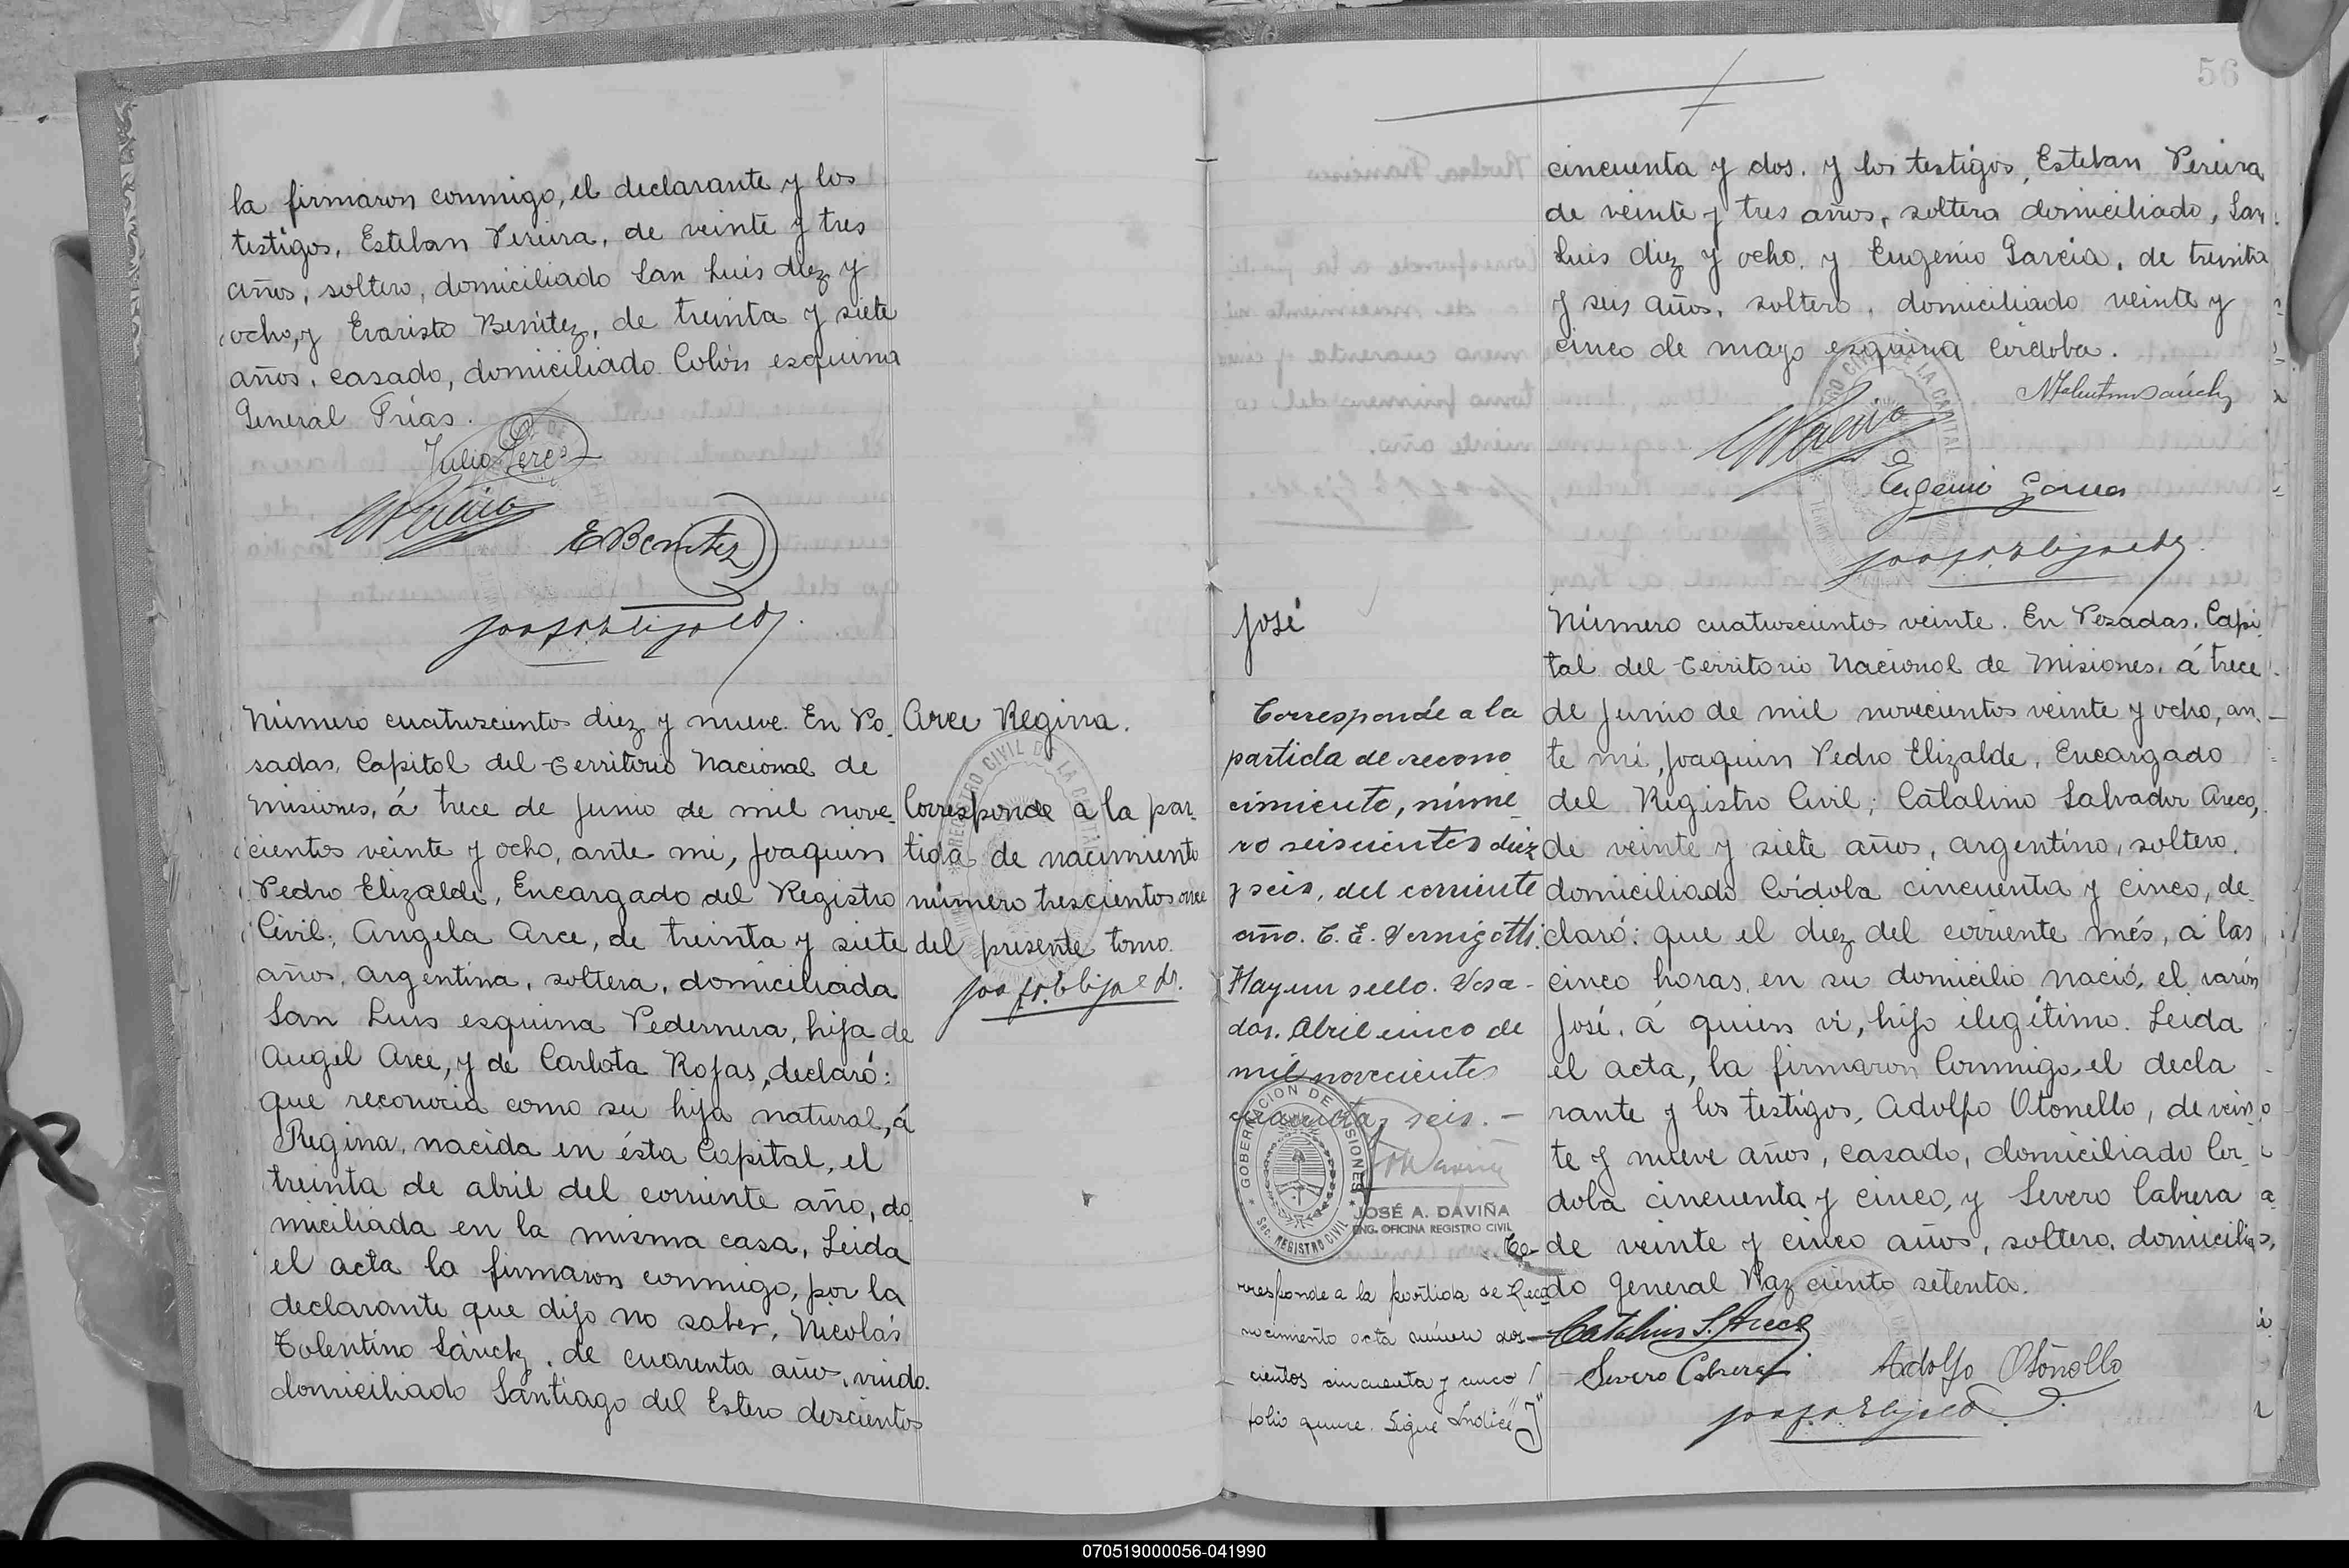 la firmaron conmigo, el declarante y los
testigos, Esteban Pereira, de veinte y tres
años, soltero, domiciliado San Luis diez y
ocho, y Evaristo Benitez, de treinta y siete
años, casado, domiciliado Colón esquina
General Frías.
Julio Perez
E Benitez
Número cuatrocientos diez y nueve. En Po-
sadas, Capital del Territorio Nacional de
Misiones, á trece de Junio de mil nove-
cientos veinte y ocho, ante mi, Joaquin
Pedro Elizalde, Encargado del Registro
Civil; Angela Arce, de treinta y siete
años, argentina, soltera, domiciliada
San Luis esquina Pedernera, hija de
Angel Arce, y de Carlota Rojas, declaró:
que reconocia como su hija natural, á
Regina, nacida en ésta Capital, el
treinta de abril del corriente año, do
miciliada en la misma casa. Leida
el acta la firmaron conmigo, por la
declarante que dijo no saber, Nicolás
Tolentino Sánchz, de cuarenta años, viudo.
domiciliado Santiago del Estero doscientos
Arce Regina.
Corresponde a la par-
tida de nacimiento
número trescientos once
del presente tomo.
56
cincuenta y dos. y los testigos, Esteban Pereira
de veinte y tres años, soltero domiciliado, San
Luis diez y ocho. y Eugenio Garcia, de treinta
y seis años, soltero, domiciliado veinte y
cinco de mayo esquina Córdoba.
Eugenio Garcia
José
Corresponde a la
partida de recono
cimiento, núme-
ro seiscientos diez
y seis, del corriente
año. C. E. Vernigotti.
Hay un sello. Posa-
das. Abril cinco de
mil novecientos
cuarenta y seis. -
GOBERNACION DE MISIONES
Sec. REGISTRO CIVIL
JOSÉ A. DAVIÑA
ENG. OFICINA REGISTRO CIVIL
Co-
rresponde a la partida de Reco-
nocimiento acta número dos-
cientos cincuenta y cinco /
folio quince. Sigue Indice "J"
Número cuatrocientos veinte. En Posadas, Capi-
tal del Territorio Nacional de Misiones, á trece
de Junio de mil novecientos veinte y ocho, an-
te mi, Joaquin Pedro Elizalde, Encargado
del Registro Civil; Catalino Salvador Areco,
de veinte y siete años, argentino, soltero,
domiciliado Córdoba cincuenta y cinco, de-
claró: que el diez del corriente més, á las
cinco horas, en su domicilio nació, el varón
José, á quien vi, hijo ilegítimo. Leida
el acta, la firmaron Conmigo, el decla
rante y los testigos, Adolfo Otonello, de vein
te y nueve años, casado, domiciliado Cór-
doba cincuenta y cinco, y Severo Cabrera
de veinte y cinco años, soltero, domicilia
do General Paz ciento setenta.
Catalino S. Areco
Severo Cabrera Adolfo Otonello
070519000056-041990